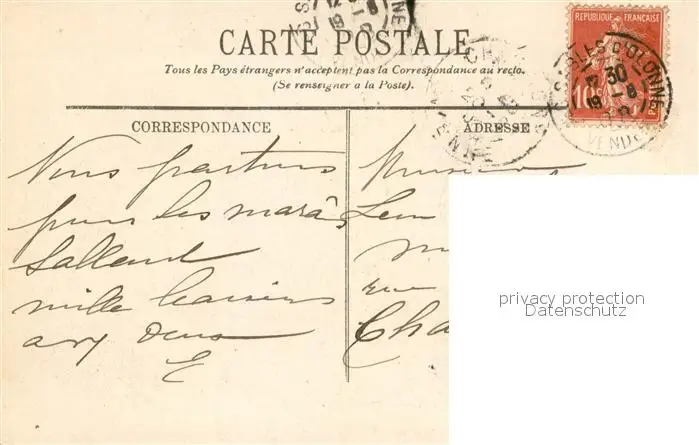 CARTE POSTALE
Tous les Pays étrangers n'acceptent pas la Correspondance au recto.
(Se renseigner a la Poste).
REPUBLIQUE FRANÇAISE
10c
SABLES D'OLONNE
12 30
19 - 8
VENDÉE
CORRESPONDANCE
ADRESSE
Nous partons
pour les marais
Sallend
mille baisers
aux deux
E
Monsieur
rue
Cha
privacy protection
Datenschutz